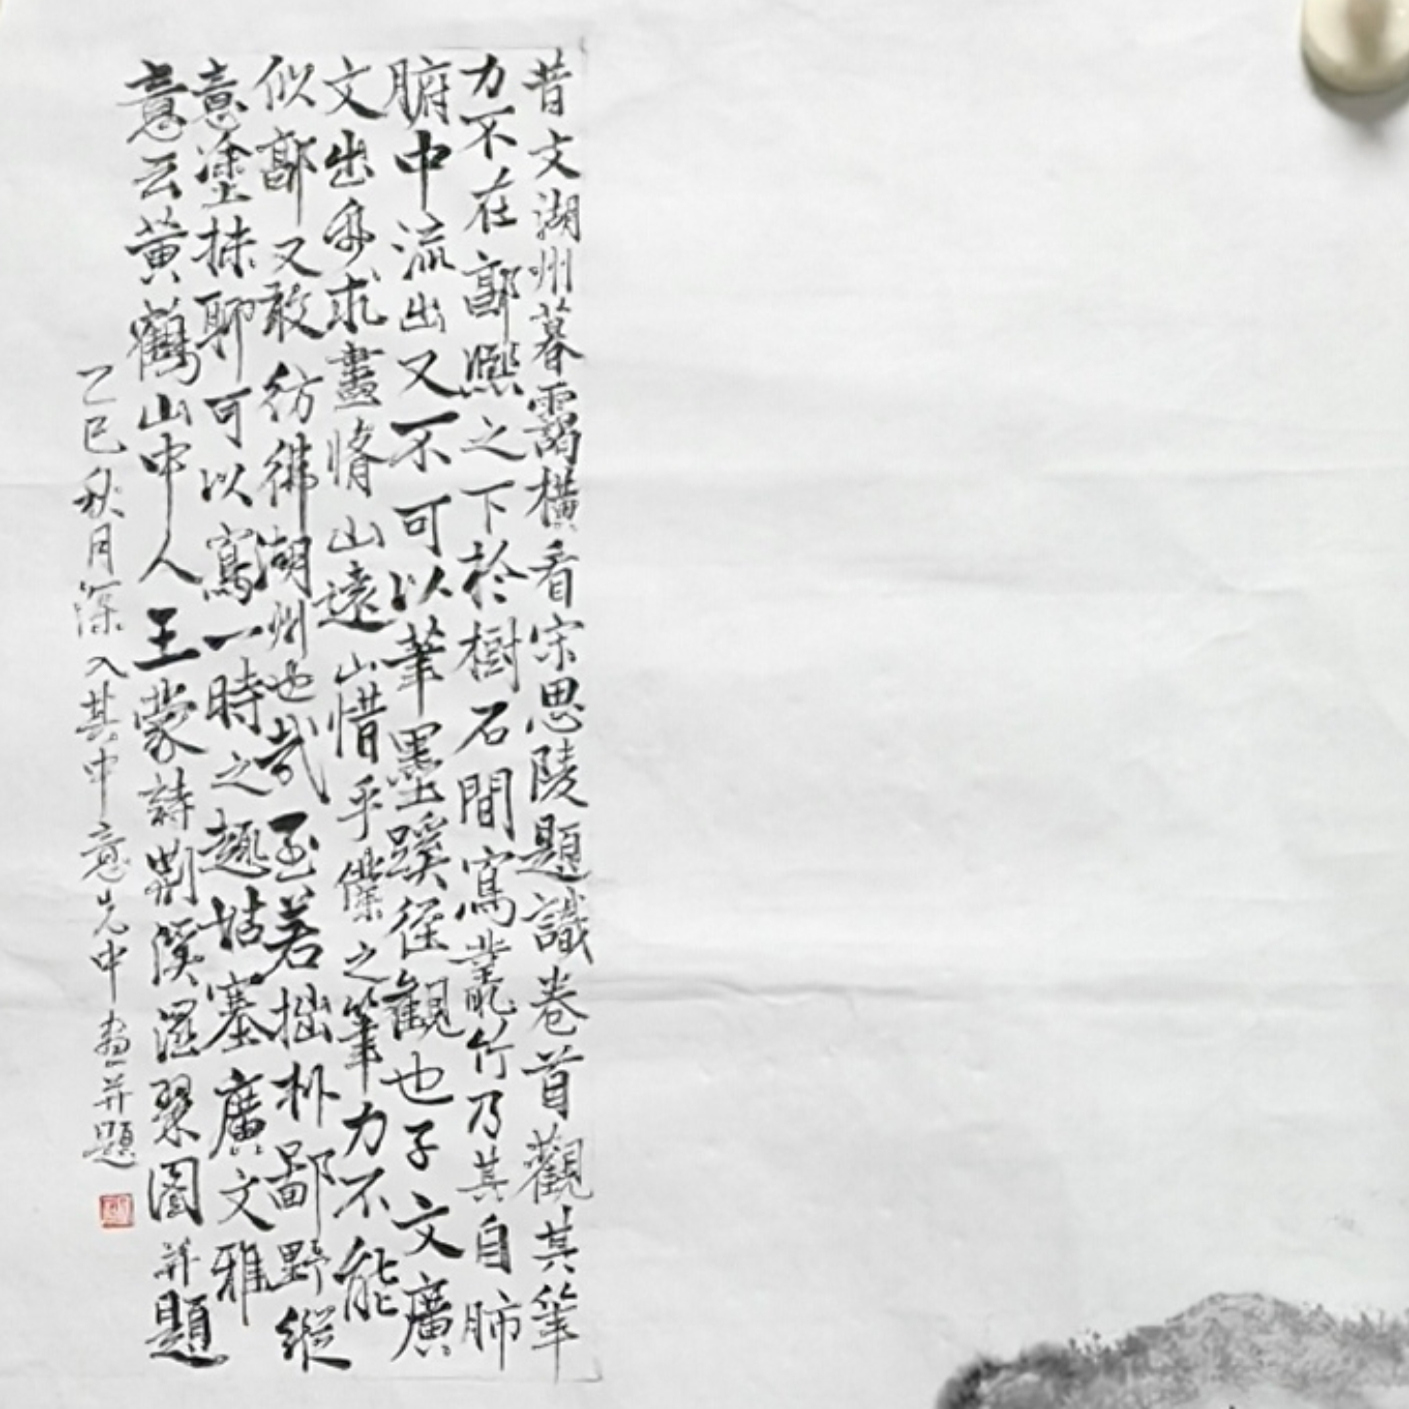 昔文湖州暮靄橫看宋思陵題識卷首觀其筆
力不在郭熙之下於樹石間寫叢竹乃其自肺
腑中流出又不可以筆墨蹊徑觀也子文廣
文出求畫脩山遠山惜乎僕之筆力不能
似郭又敢彷彿湖州也哉至若拙朴鄙野縱
意塗抹聊可以寫一時之趣姑塞廣文雅
意云黄鶴山中人王蒙詩剡溪溼翠圖并題
乙巳秋月深入其中意先中畫并題